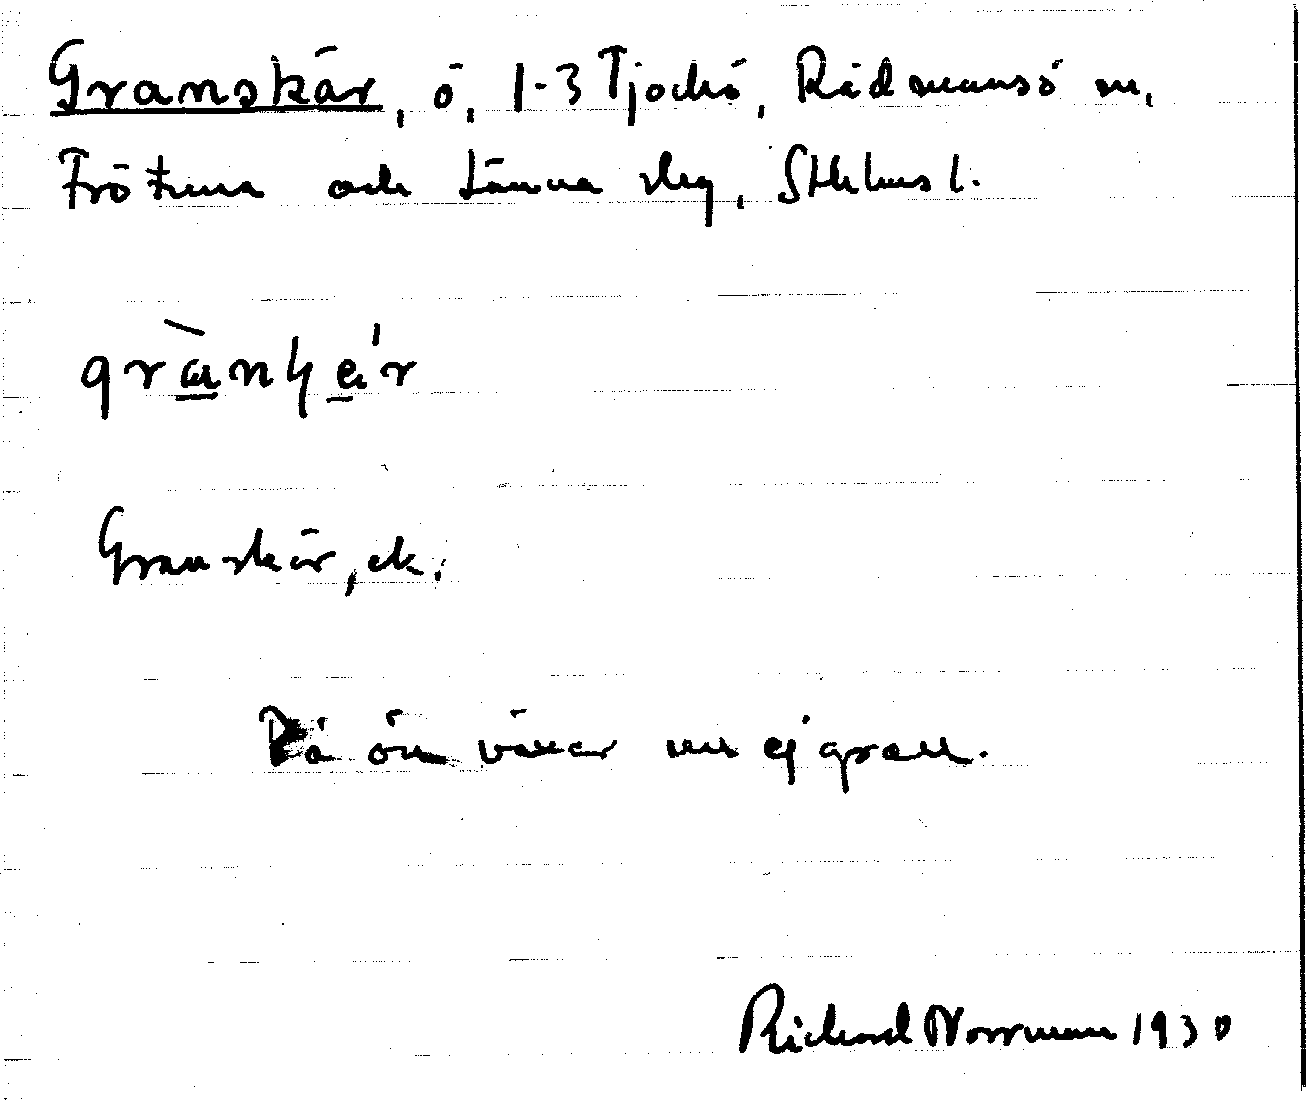 Granskär, ö, 1-3 Tjockö, Rådmansö sn,
Frötuna och Länna slg, Sthlms l.
Granskär, ek.
På ön växer nu ej gran.
Richard Norrman 1930